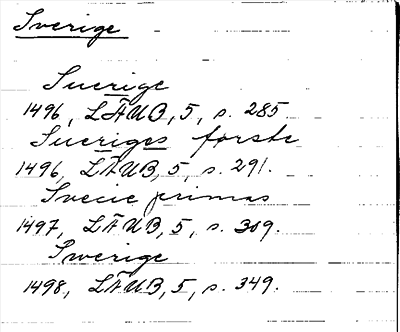 Sverige
Suerige
1496, LÄUB, 5, s. 285.
Sueriges første
1496, LÄUB, 5, s. 291.
Svecie primas
1497, LÄUB, 5, s. 309.
Swerige
1498, LÄUB, 5, s. 349.